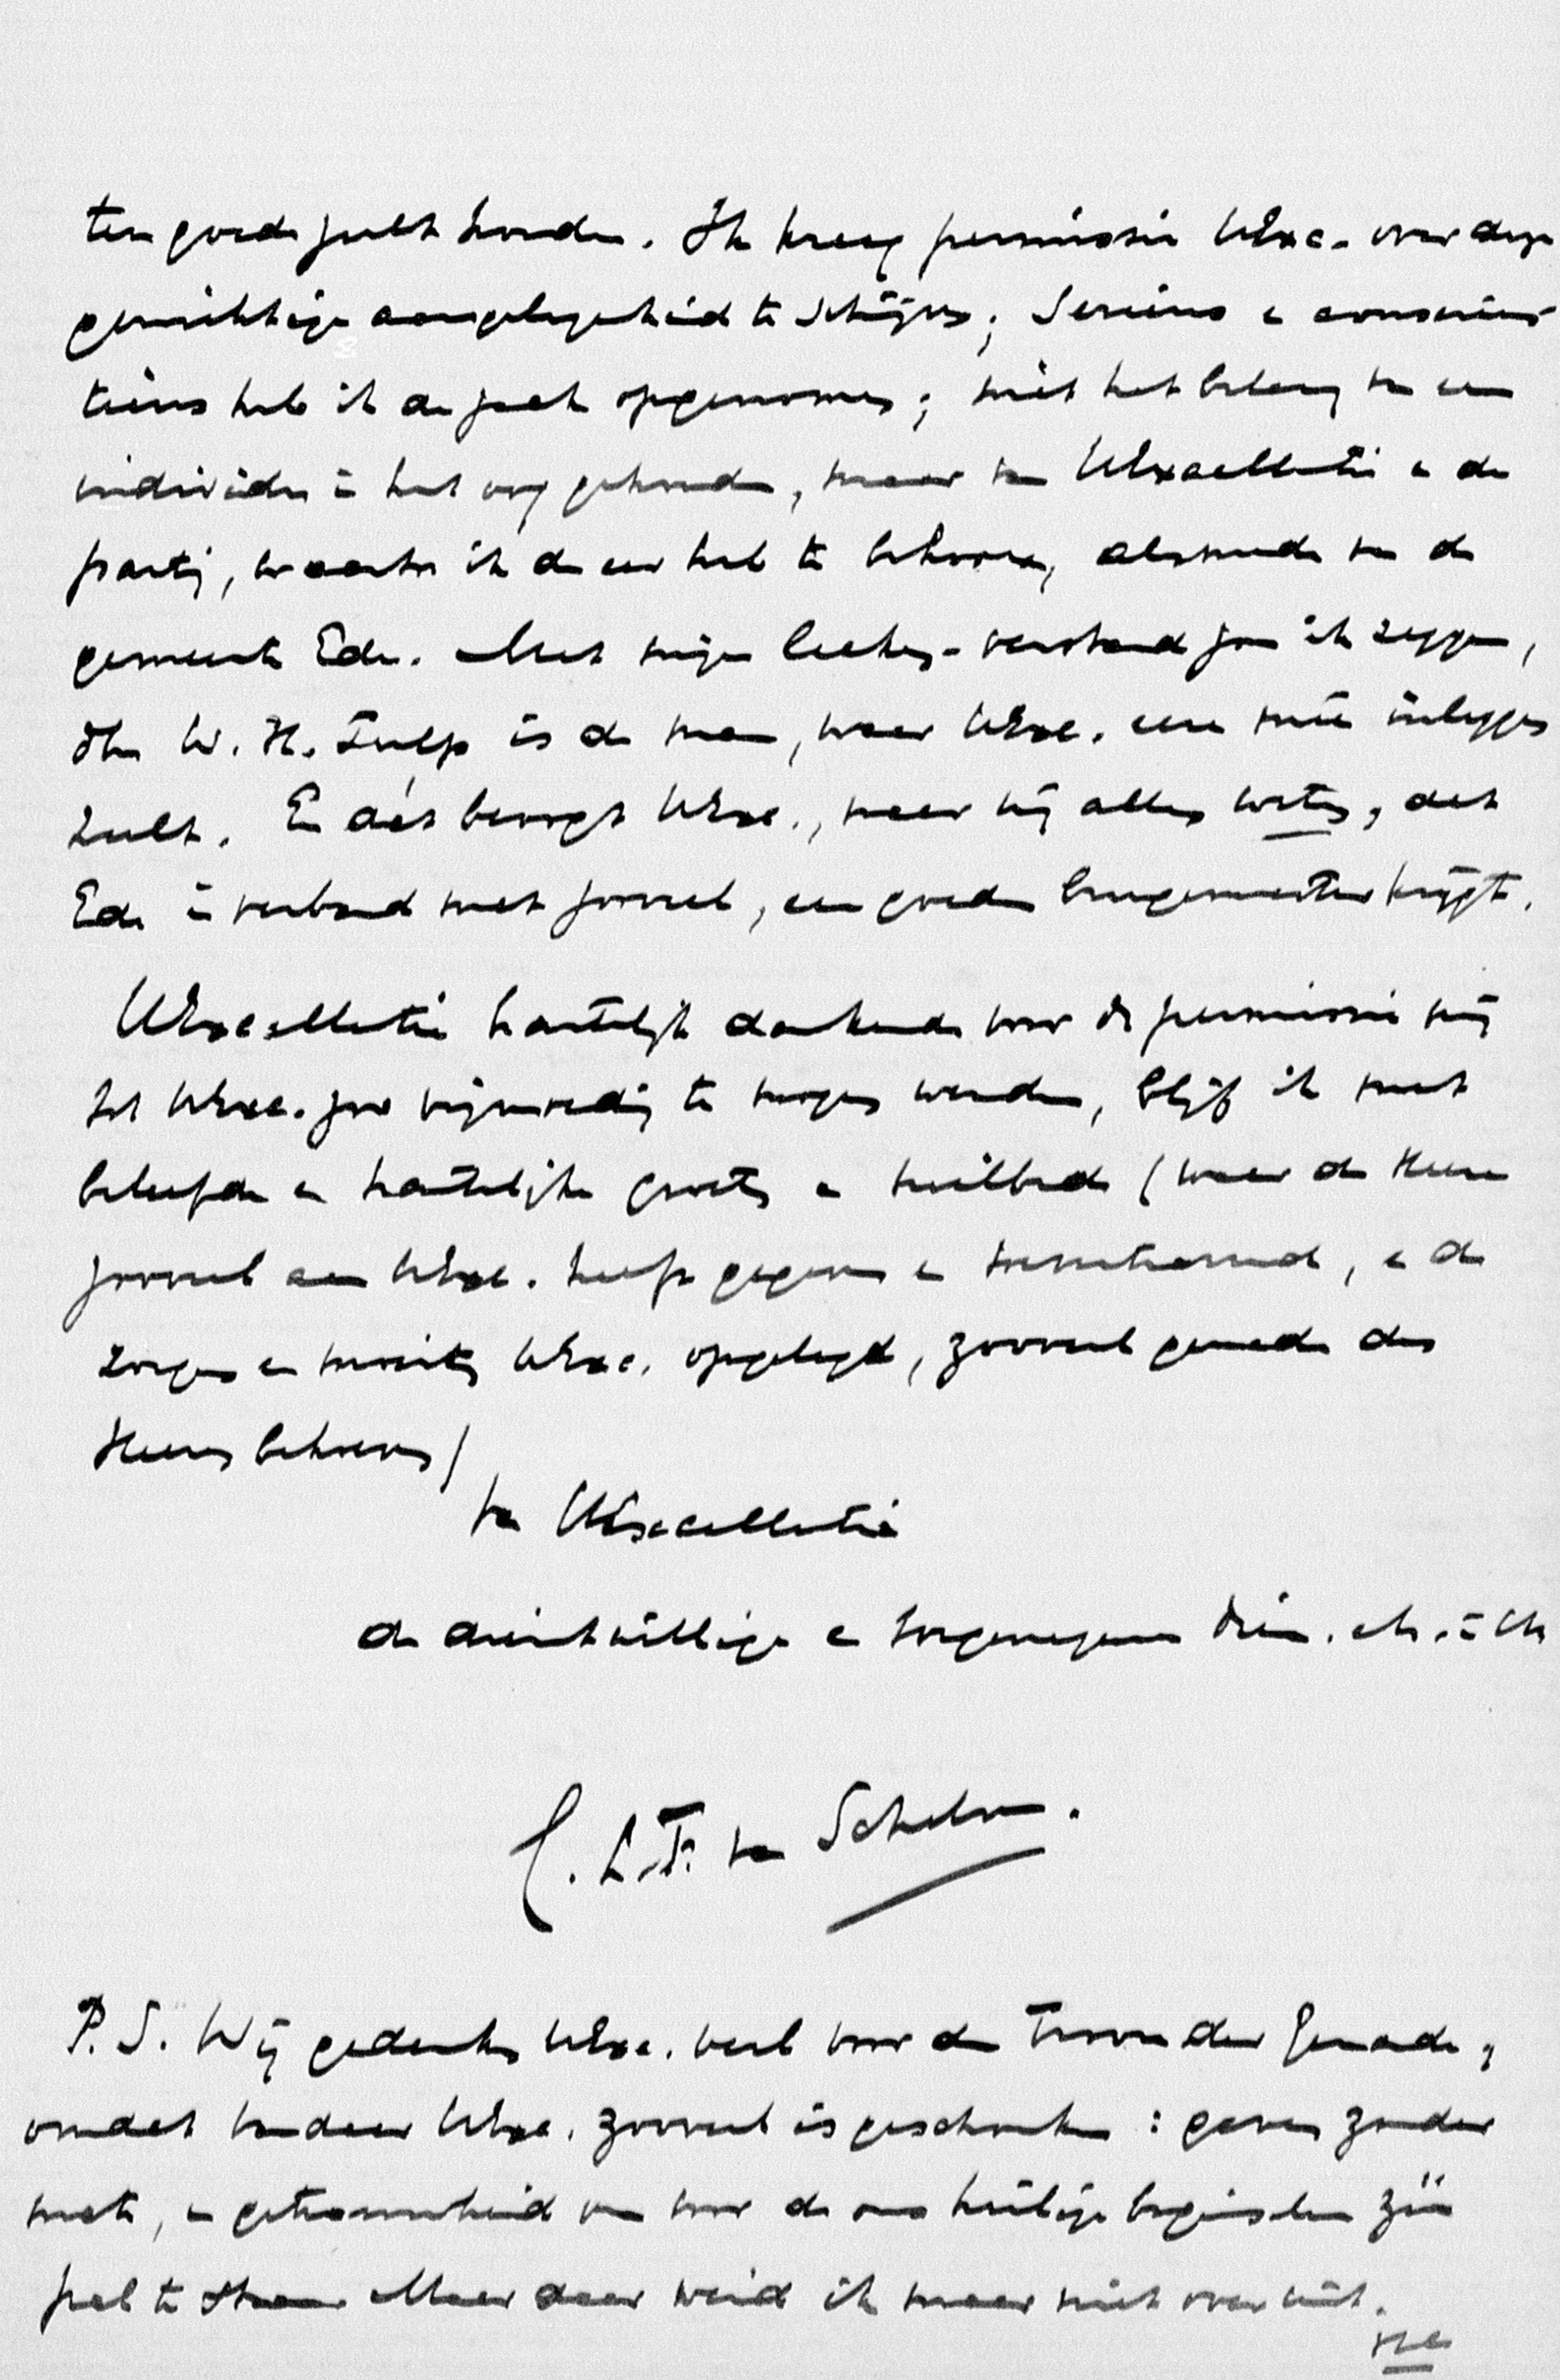 ten goede zult houden. Ik kreeg permissie UExc. over deze
gewichtige aangelegenheid te schrijven; Serieus en conscien-
tieus heb ik de zaak opgenomen; niet het belang van een
individu in het oog gehouden, maar van UExcellentie en de
partij, waartoe ik de eer heb te behooren, alsmede van de
gemeente Ede. Met mijn leeken-verstand zou ik zeggen,
dhr W. H. Tulp is de man, waar UExc. eere mee inleggen
zult. En dát beoogt UExc., naar wij allen weten, dat
Ede in verband met zooveel, een goeden burgemeester krijgt.
UExcellentie hartelijk dankende voor de permissie mij
tot UExc. zoo vrijmoedig te mogen wenden, blijf ik met
beleefde en hartelijke groeten en heilbede (waar de Heere
zooveel aan UExc. heeft gegeven en toevertrouwd, en de
zorgen en moeiten UExc. opgelegd, zooveel genade des
Heeren behoeven)
van UExcellentie
de dienstwillige en toegenegen dien. en br. in Chr
C. L. F. van Schelven.
P.S. Wij gedenken UExc. veel voor den Troon der Genade,
omdat van daar UExc. zooveel is geschonken: gaven zonder
mate, en getrouwheid om voor de ons heilige beginselen
pal te staan. Maar daar weid ik maar niet over uit.